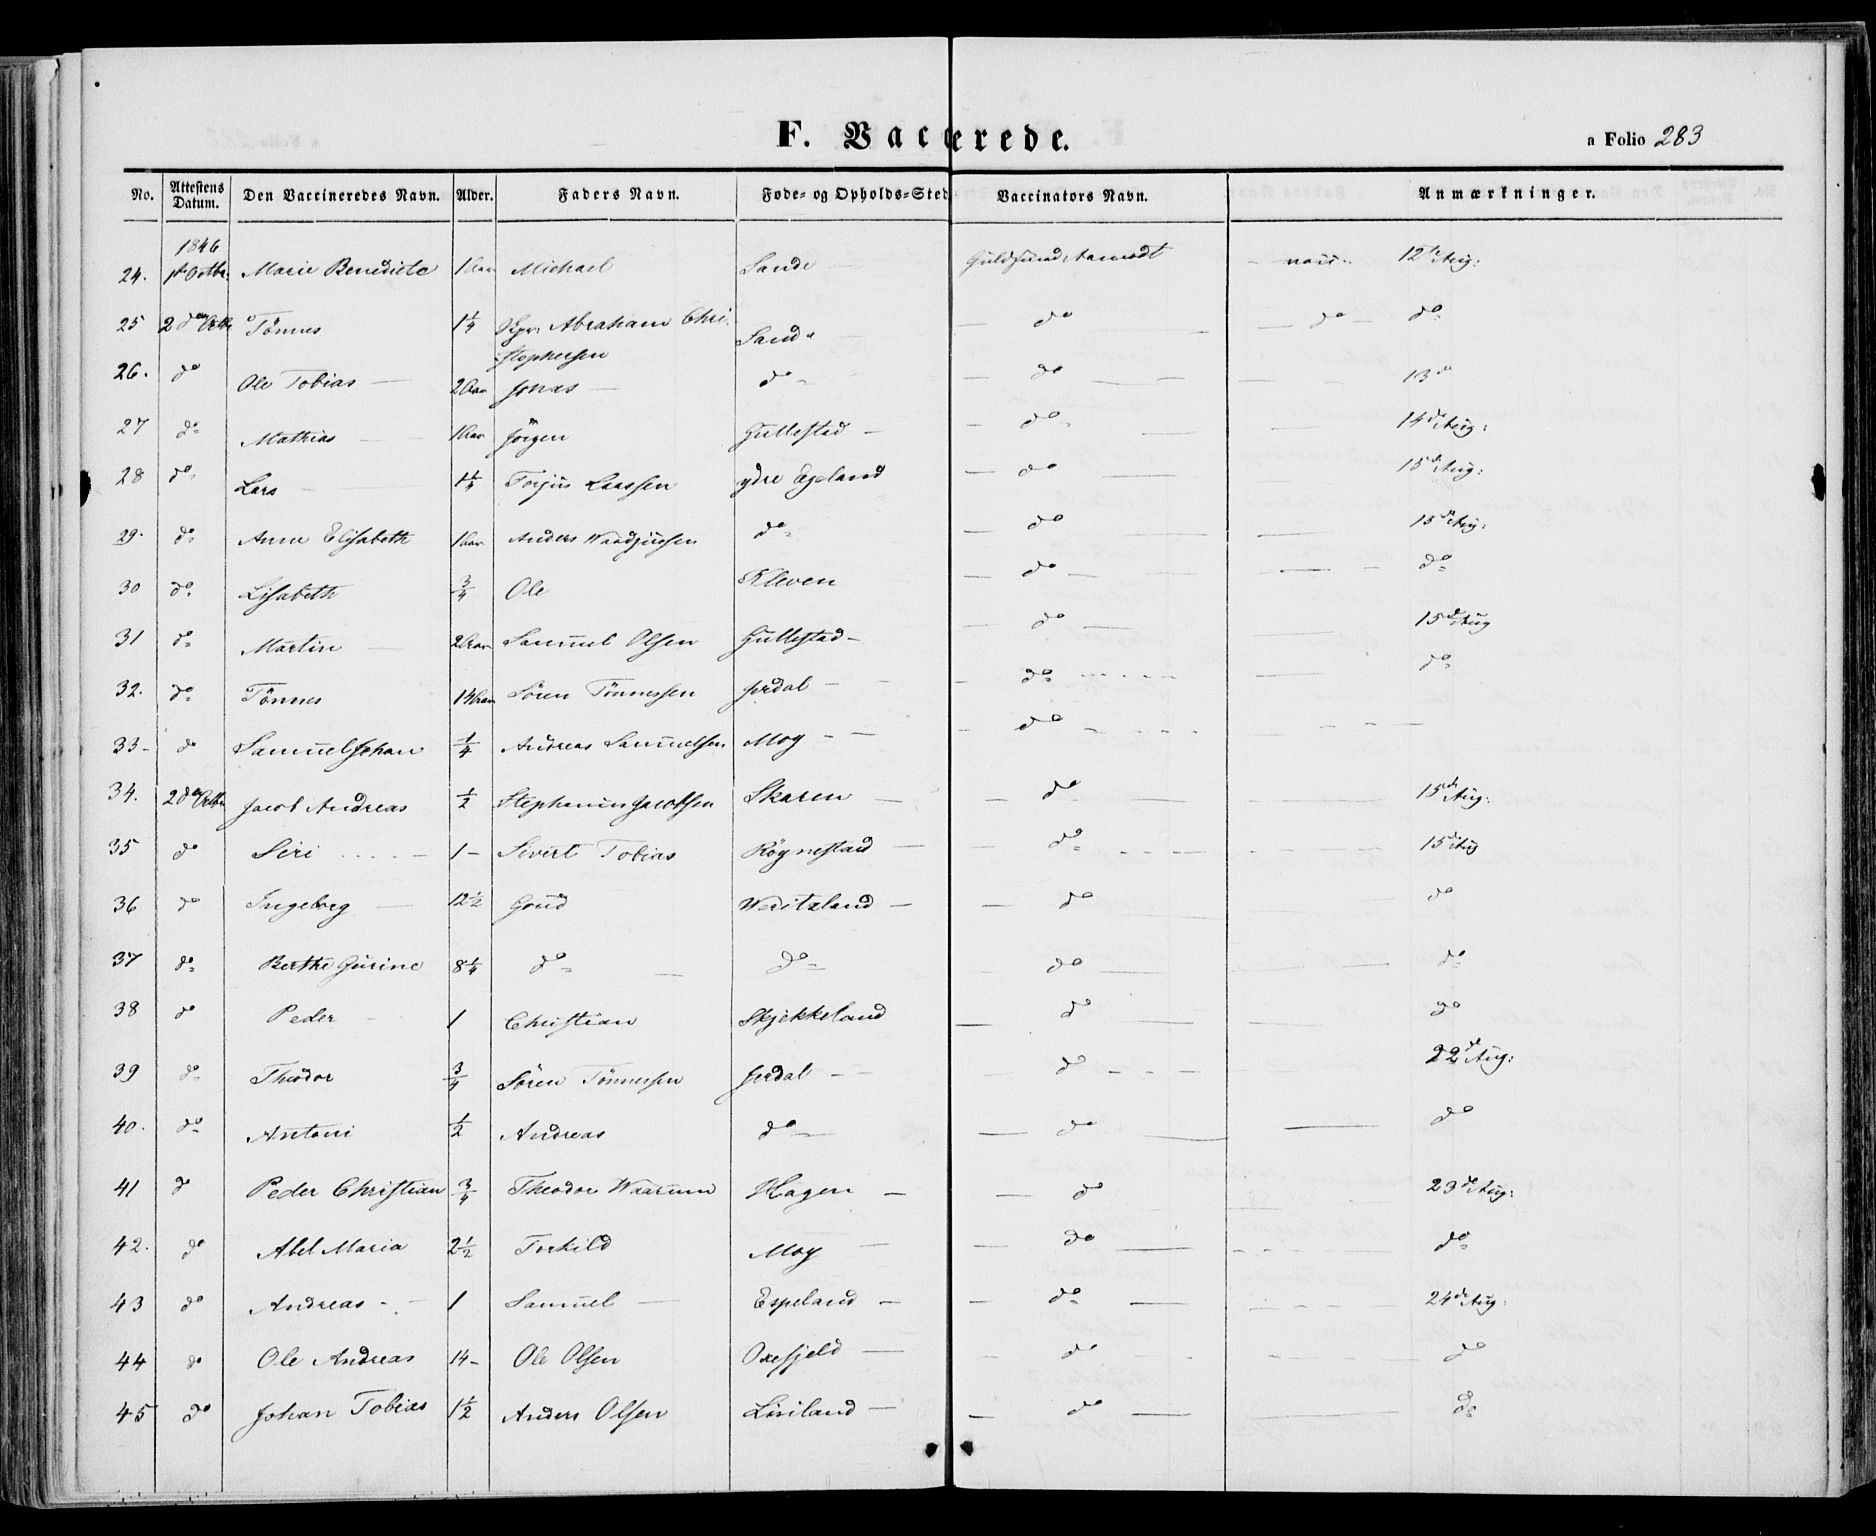 F. Vaccerede.
a Folio 283
No. Attestens Datum. Den Vaccineredes Navn. Alder. Faders Navn. Føde- og Opholds-Sted Vaccinators Navn. Anmærkninger.
1846
24. 1st Octbr. Marie Benedicte 1 Aar Michael Sande 12te Aug:
25 2den Octbr Tönnes 1¼ Abraham Chri- Sande do do do
stophersen
26. do Ole Tobias 2 Aar Jonas do do 13de
27 do Mathias 1 Aar Jörgen Gullestad do 14de Aug:
28 do Lars 1¼ Torjus Larssen ydre Egeland do 15de Aug:
29. do Anne Elisabeth 1 Aar Anders do do 15de Aug:
30 do Lisabeth ¾ Ole Kleven do do
31 do Martin 2 Aar Samuel Olsen Gullestad do 15de Aug
32. do Tönnes 14 Aar Sören Tönnessen Jerdal do do
33 do Samuel Johan ¼ Andreas Samuelsen Moy do
34. 2den Octbr Jacob Andreas ½ Jacobsen Skaren do 15de Aug:
35 do Seri 1 Sivert Tobias Rögnestad do 15de Aug
36 do Ingeborg 12½ Goud do do
37 do Berthe Gurine 8¼ do do do do
38 do Peder 1 Christian Skjekkeland do do
39 do Theodor ¾ Sören Tönnessen Jerdal do 22de Aug:
40. do Antoni ½ Andreas do do do
41 do Peder Christian ¾ Theodor Hagen do 23de Aug:
42. do Abel Maria 2½ Torkild Moy do do
43 do Andreas 1 Samuel Espeland do 24de Aug:
44 do Ole Andreas 14 Ole Olsen Oxefjeld do do
45 do Johan Tobias 1½ Anders Olsen do do